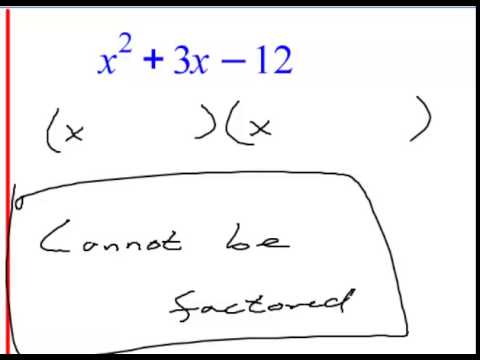 x² + 3x − 12
(x )(x )
Cannot be
factored